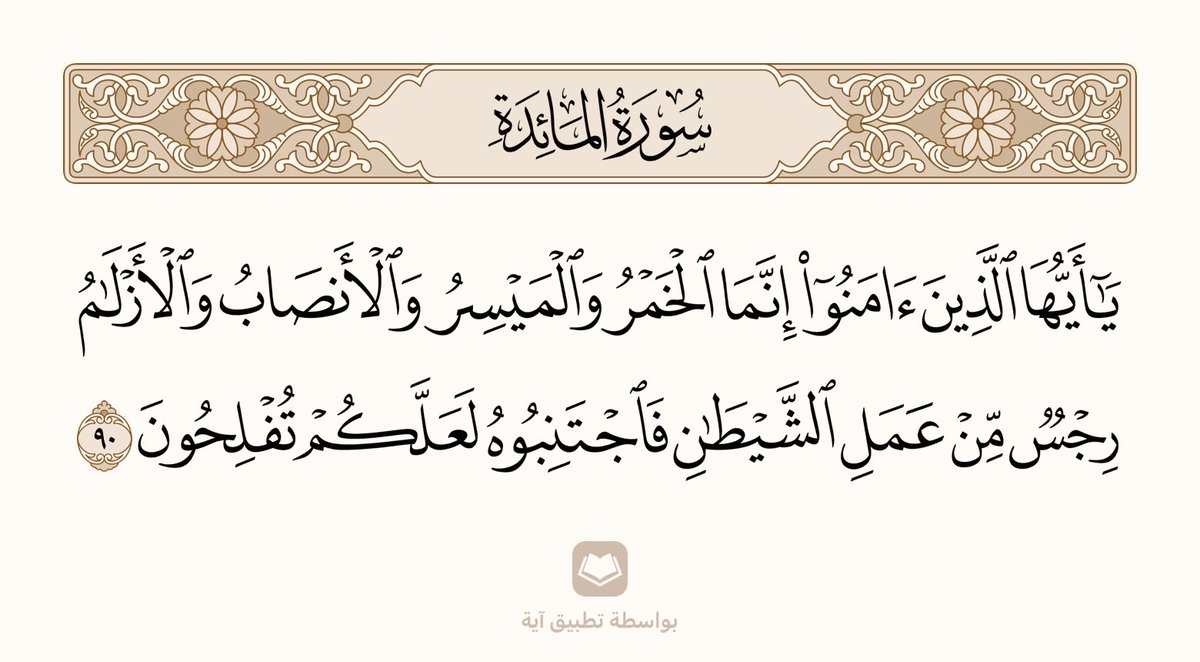 سُورَةُ المَائِدَةِ
يَٰٓأَيُّهَا ٱلَّذِينَ ءَامَنُوٓاْ إِنَّمَا ٱلْخَمْرُ وَٱلْمَيْسِرُ وَٱلْأَنصَابُ وَٱلْأَزْلَٰمُ
رِجْسٌ مِّنْ عَمَلِ ٱلشَّيْطَٰنِ فَٱجْتَنِبُوهُ لَعَلَّكُمْ تُفْلِحُونَ ٩٠
بواسطة تطبيق آية